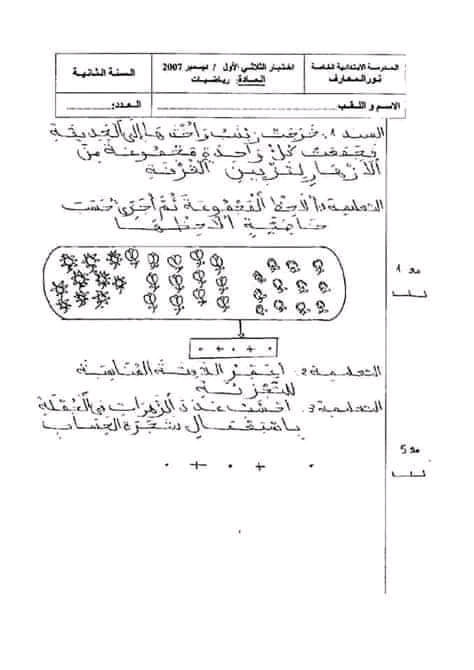 المدرسة الابتدائية الخاصة
نور المعارف
اختبار الثلاثي الأول / ديسمبر 2007
المادة: رياضيات
السنة الثانية
الاسم و اللقب: ........................................ العدد: ................
السند 1: خرجت زينب وأختها إلى الحديقة
فجمعت كل واحدة مجموعة من
الأزهار لتزيين الغرفة
التعليمة 1: ألاحظ المجموعة ثم أجزئ حسب
خاصية ألاحظها
مع 1
. + . + .
التعليمة 2: الفرضية المناسبة
للتجزئة
التعليمة 3: أحسب عدد الزهرات في الجملة
باستعمال شجرة الحساب
مع 5
. + . + .